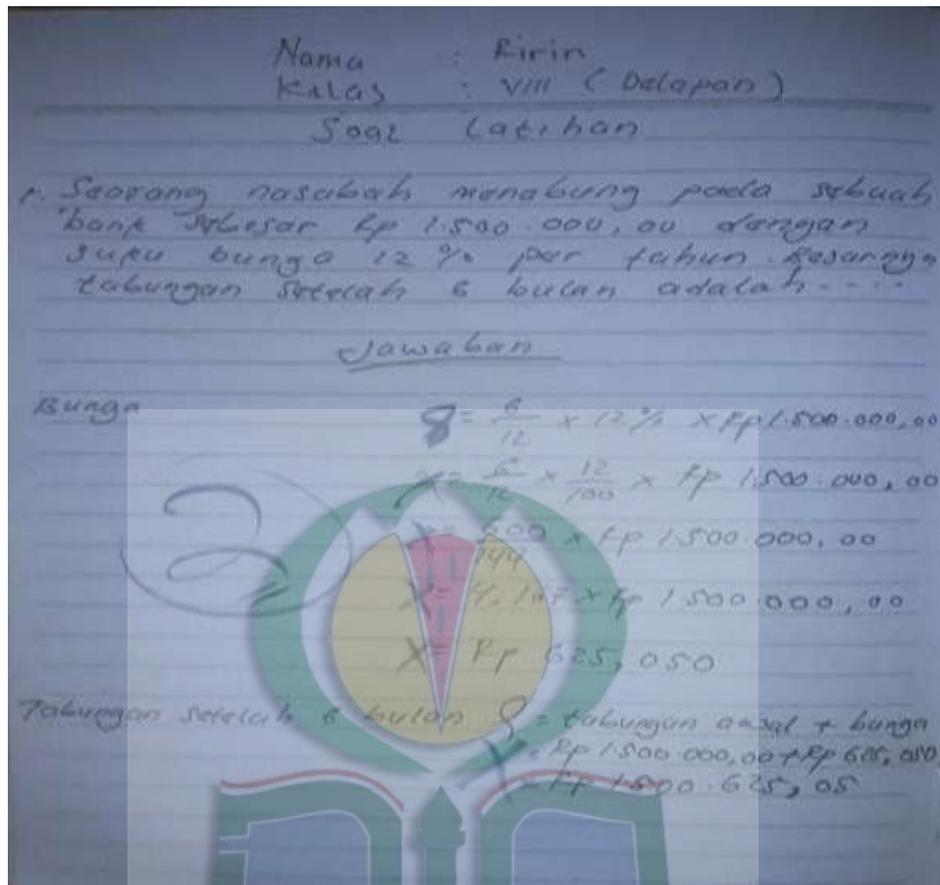 Nama : Ririn
Kelas : VIII (Delapan)
Soal Latihan
1. Seorang nasabah menabung pada sebuah
bank sebesar Rp 1.500.000,00 dengan
suku bunga 12 % per tahun. Besarnya
tabungan setelah 6 bulan adalah ....
Jawaban
Bunga 8 = 6/12 x 12% x Rp 1.500.000,00
= 6/12 x 12/100 x Rp 1.500.000,00
= 600/144 x Rp 1.500.000,00
x Rp 1.500.000,00
X = Rp 625,050
2
Tabungan setelah 6 bulan = tabungan awal + bunga
= Rp 1.500.000,00 + Rp 625,050
= Rp 1.500.625,05